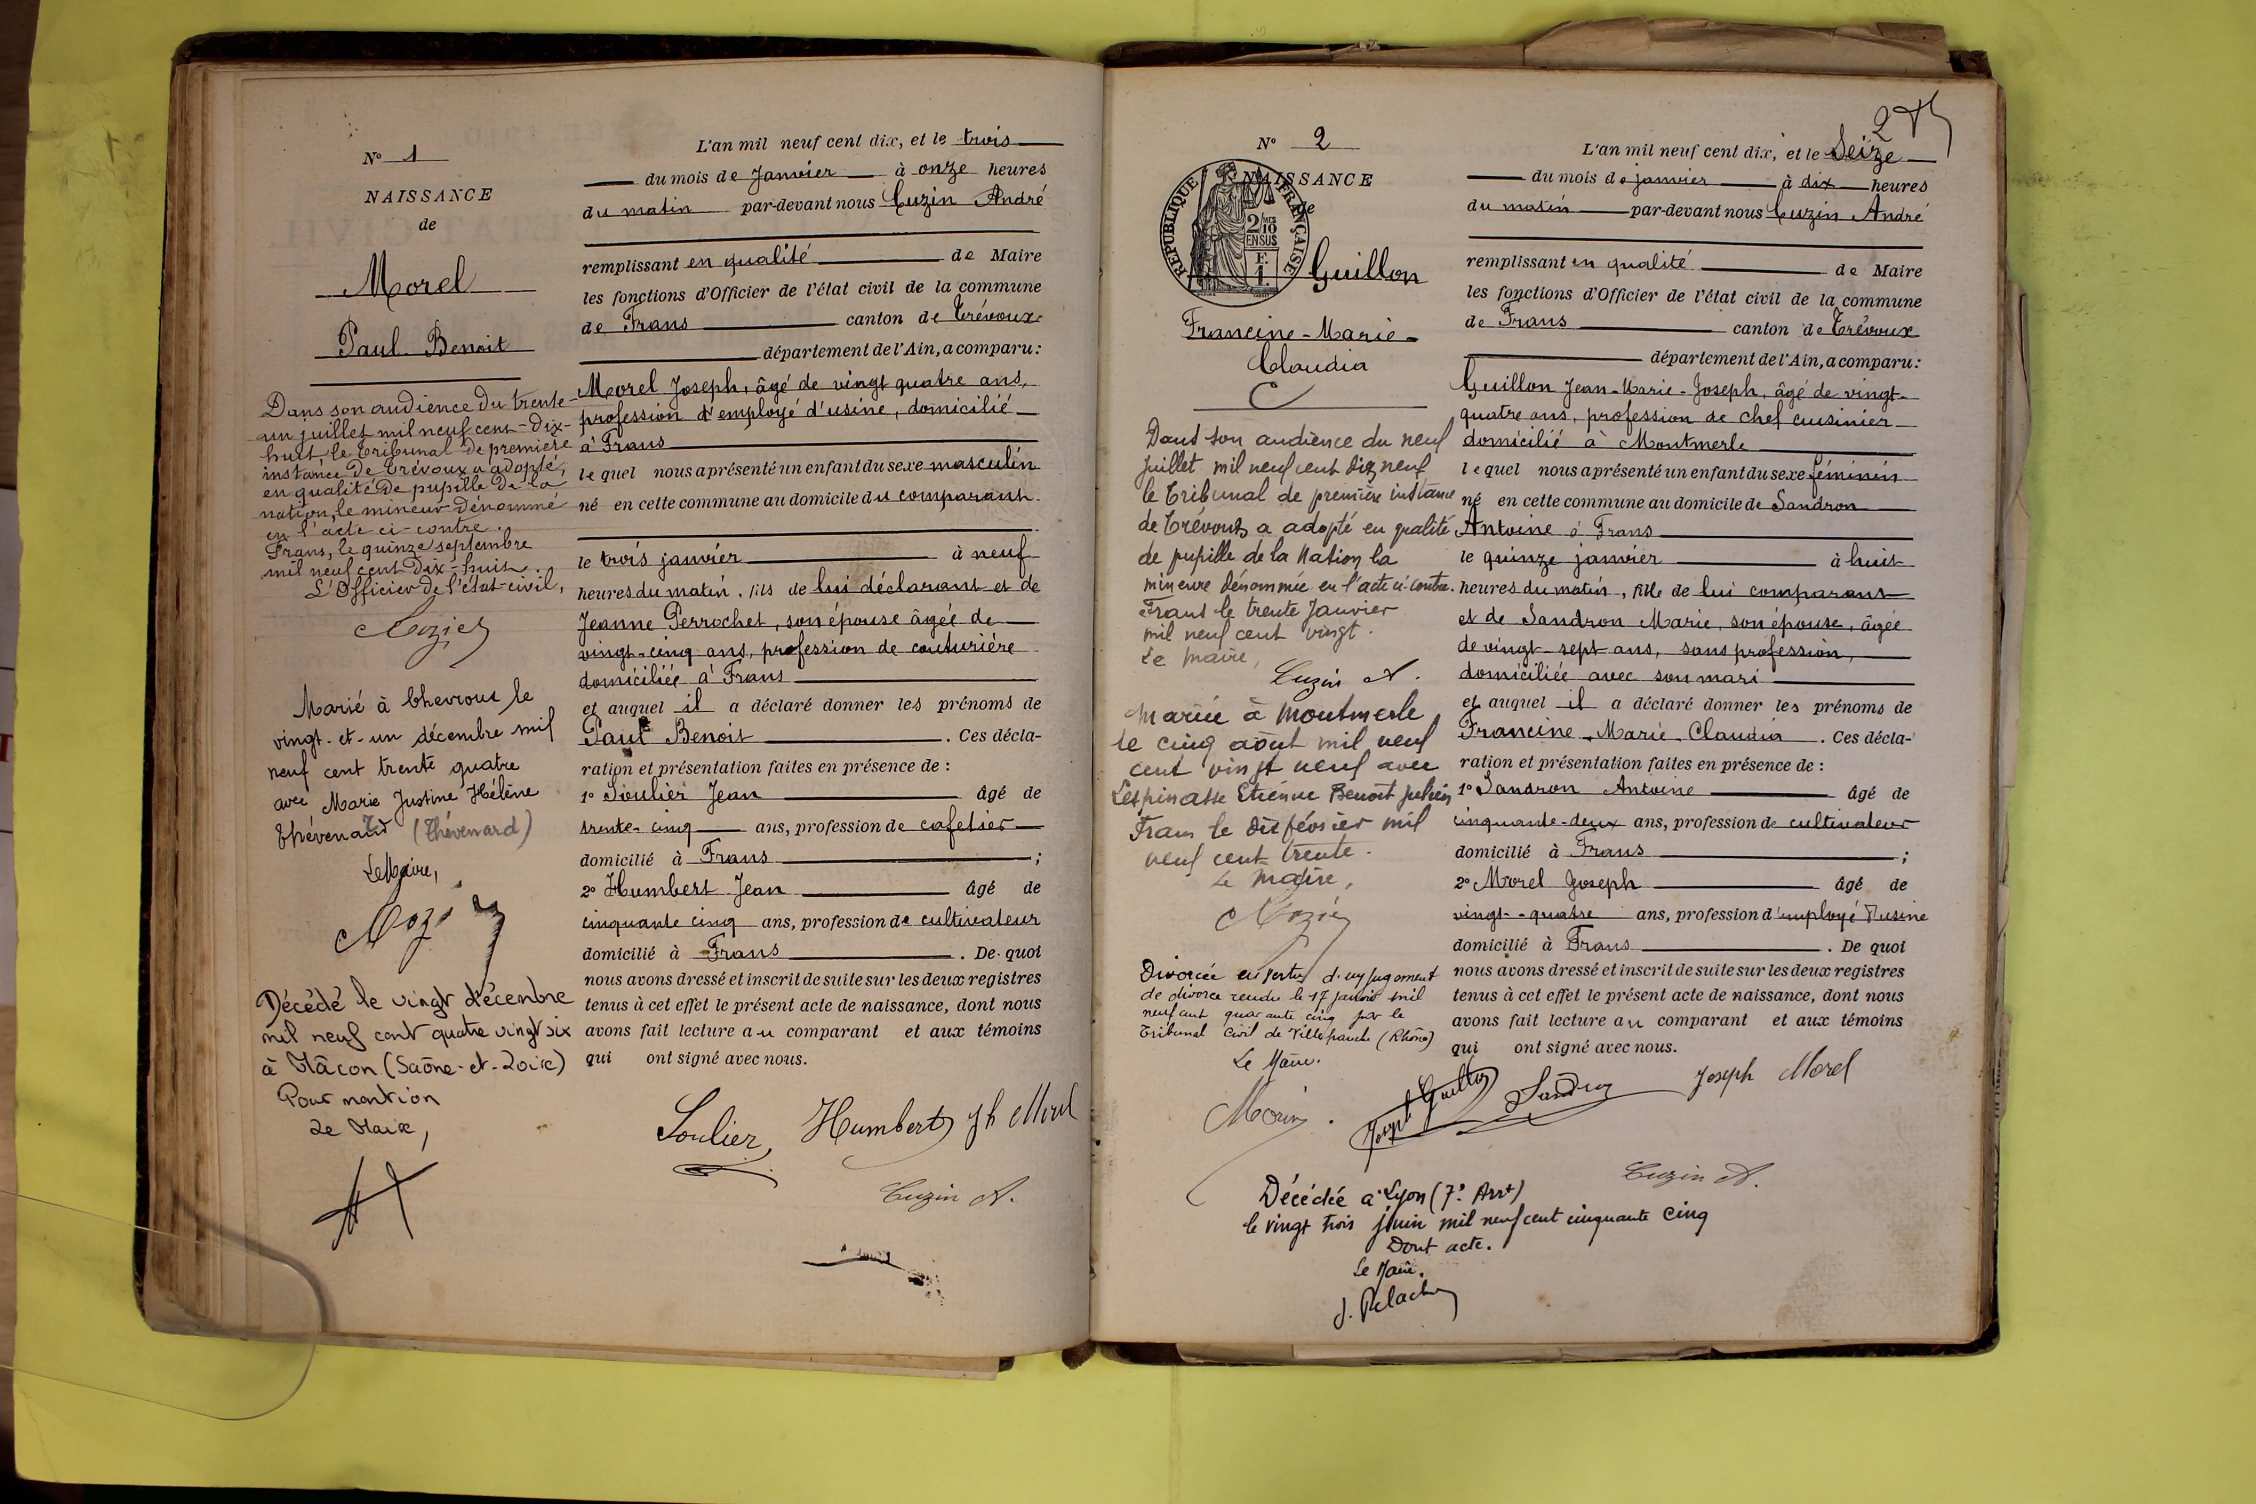 N° 1
NAISSANCE
de
Morel
Paul Benoit
Dans son audience du trente-
un juillet mil neuf cent-dix-
huit, le Tribunal de première
instance de Trévoux a adopté,
en qualité de pupille de la
nation, le mineur dénommé
en l'acte ci-contre.
Frans, le quinze septembre
mil neuf cent dix-huit.
L'Officier de l'état-civil,
Marié à Chevroux le
vingt-et-un décembre mil
neuf cent trente quatre
avec Marie Justine Hélène
Thévenard (Thévenard)
Le Maire,
Décédé le vingt décembre
mil neuf cent quatre vingt six
à Mâcon (Saône-et-Loire)
Pour mention
Le Maire,
L'an mil neuf cent dix, et le trois
du mois de Janvier à onze heures
du matin par-devant nous Cuzin André
remplissant en qualité de Maire
les fonctions d'Officier de l'état civil de la commune
de Frans canton de Trévoux
département de l'Ain, a comparu:
Morel Joseph, âgé de vingt quatre ans,
profession d'employé d'usine, domicilié
à Frans
lequel nous a présenté un enfant du sexe masculin
né en cette commune au domicile du comparant
le trois janvier à neuf
heures du matin, fils de lui déclarant et de
Jeanne Perrochet, son épouse âgée de
vingt-cinq ans, profession de couturière
domiciliée à Frans
et auquel il a déclaré donner les prénoms de
Paul Benoit. Ces décla-
ration et présentation faites en présence de:
1° Soulier Jean âgé de
trente-cinq ans, profession de cafetier
domicilié à Frans;
2° Humbert Jean âgé de
cinquante cinq ans, profession de cultivateur
domicilié à Frans. De quoi
nous avons dressé et inscrit de suite sur les deux registres
tenus à cet effet le présent acte de naissance, dont nous
avons fait lecture au comparant et aux témoins
qui ont signé avec nous.
Soulier Humbert Jh Morel
Cuzin A.
2
N° 2
NAISSANCE
de
REPUBLIQUE FRANÇAISE
2/10
EN SUS
F.
1.
Guillon
Francine-Marie-
Claudia
Dans son audience du neuf
juillet mil neuf cent dix neuf
le Tribunal de première instance
de Trévoux a adopté en qualité
de pupille de la Nation la
mineure dénommée en l'acte ci-contre.
Frans le trente Janvier
mil neuf cent vingt.
Le Maire,
Cuzin A.
Mariée à Montmerle
le cinq août mil neuf
cent vingt neuf avec
Lespinasse Etienne Benoit Julien
Frans le dix février mil
neuf cent trente.
Le Maire,
Divorcée en vertu d'un jugement
de divorce rendu le 17 janvier mil
neuf cent quarante cinq par le
Tribunal Civil de Villefranche (Rhône)
Le Maire.
L'an mil neuf cent dix, et le Seize
du mois de janvier à dix heures
du matin par-devant nous Cuzin André
remplissant en qualité de Maire
les fonctions d'Officier de l'état civil de la commune
de Frans canton de Trévoux
département de l'Ain, a comparu:
Guillon Jean-Marie-Joseph, âgé de vingt-
quatre ans, profession de chef cuisinier
domicilié à Montmerle
lequel nous a présenté un enfant du sexe féminin
né en cette commune au domicile de Sandron
Antoine à Frans
le quinze janvier à huit
heures du matin, fille de lui comparant
et de Sandron Marie, son épouse, âgée
de vingt-sept ans, sans profession,
domiciliée avec son mari
et auquel il a déclaré donner les prénoms de
Francine Marie Claudia. Ces décla-
ration et présentation faites en présence de:
1° Sandron Antoine âgé de
cinquante-deux ans, profession de cultivateur
domicilié à Frans;
2° Morel Joseph âgé de
vingt-quatre ans, profession d'employé d'usine
domicilié à Frans. De quoi
nous avons dressé et inscrit de suite sur les deux registres
tenus à cet effet le présent acte de naissance, dont nous
avons fait lecture au comparant et aux témoins
qui ont signé avec nous.
Joseph Guillon Sandron Joseph Morel
Cuzin A.
Décédée à Lyon (7e Arrt)
le vingt trois juin mil neuf cent cinquante cinq
Dont acte.
Le Maire.